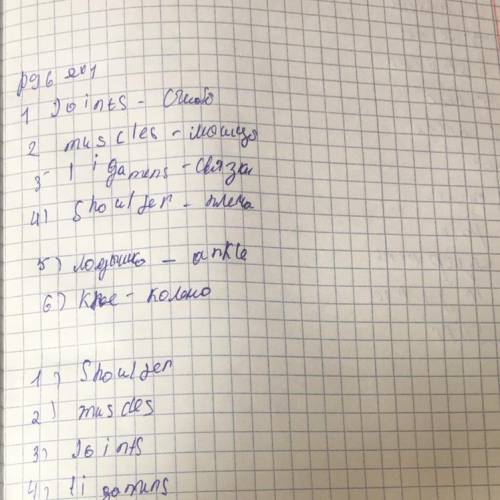 p96 ex1
1 Joints -
2 muscles - мошцо
3- ligamens - связки
4) Shoulder - плеча
5) лодышко - ankle
6) Knee - колено
1) Shoulder
2) muscles
3) Joints
4) ligamens